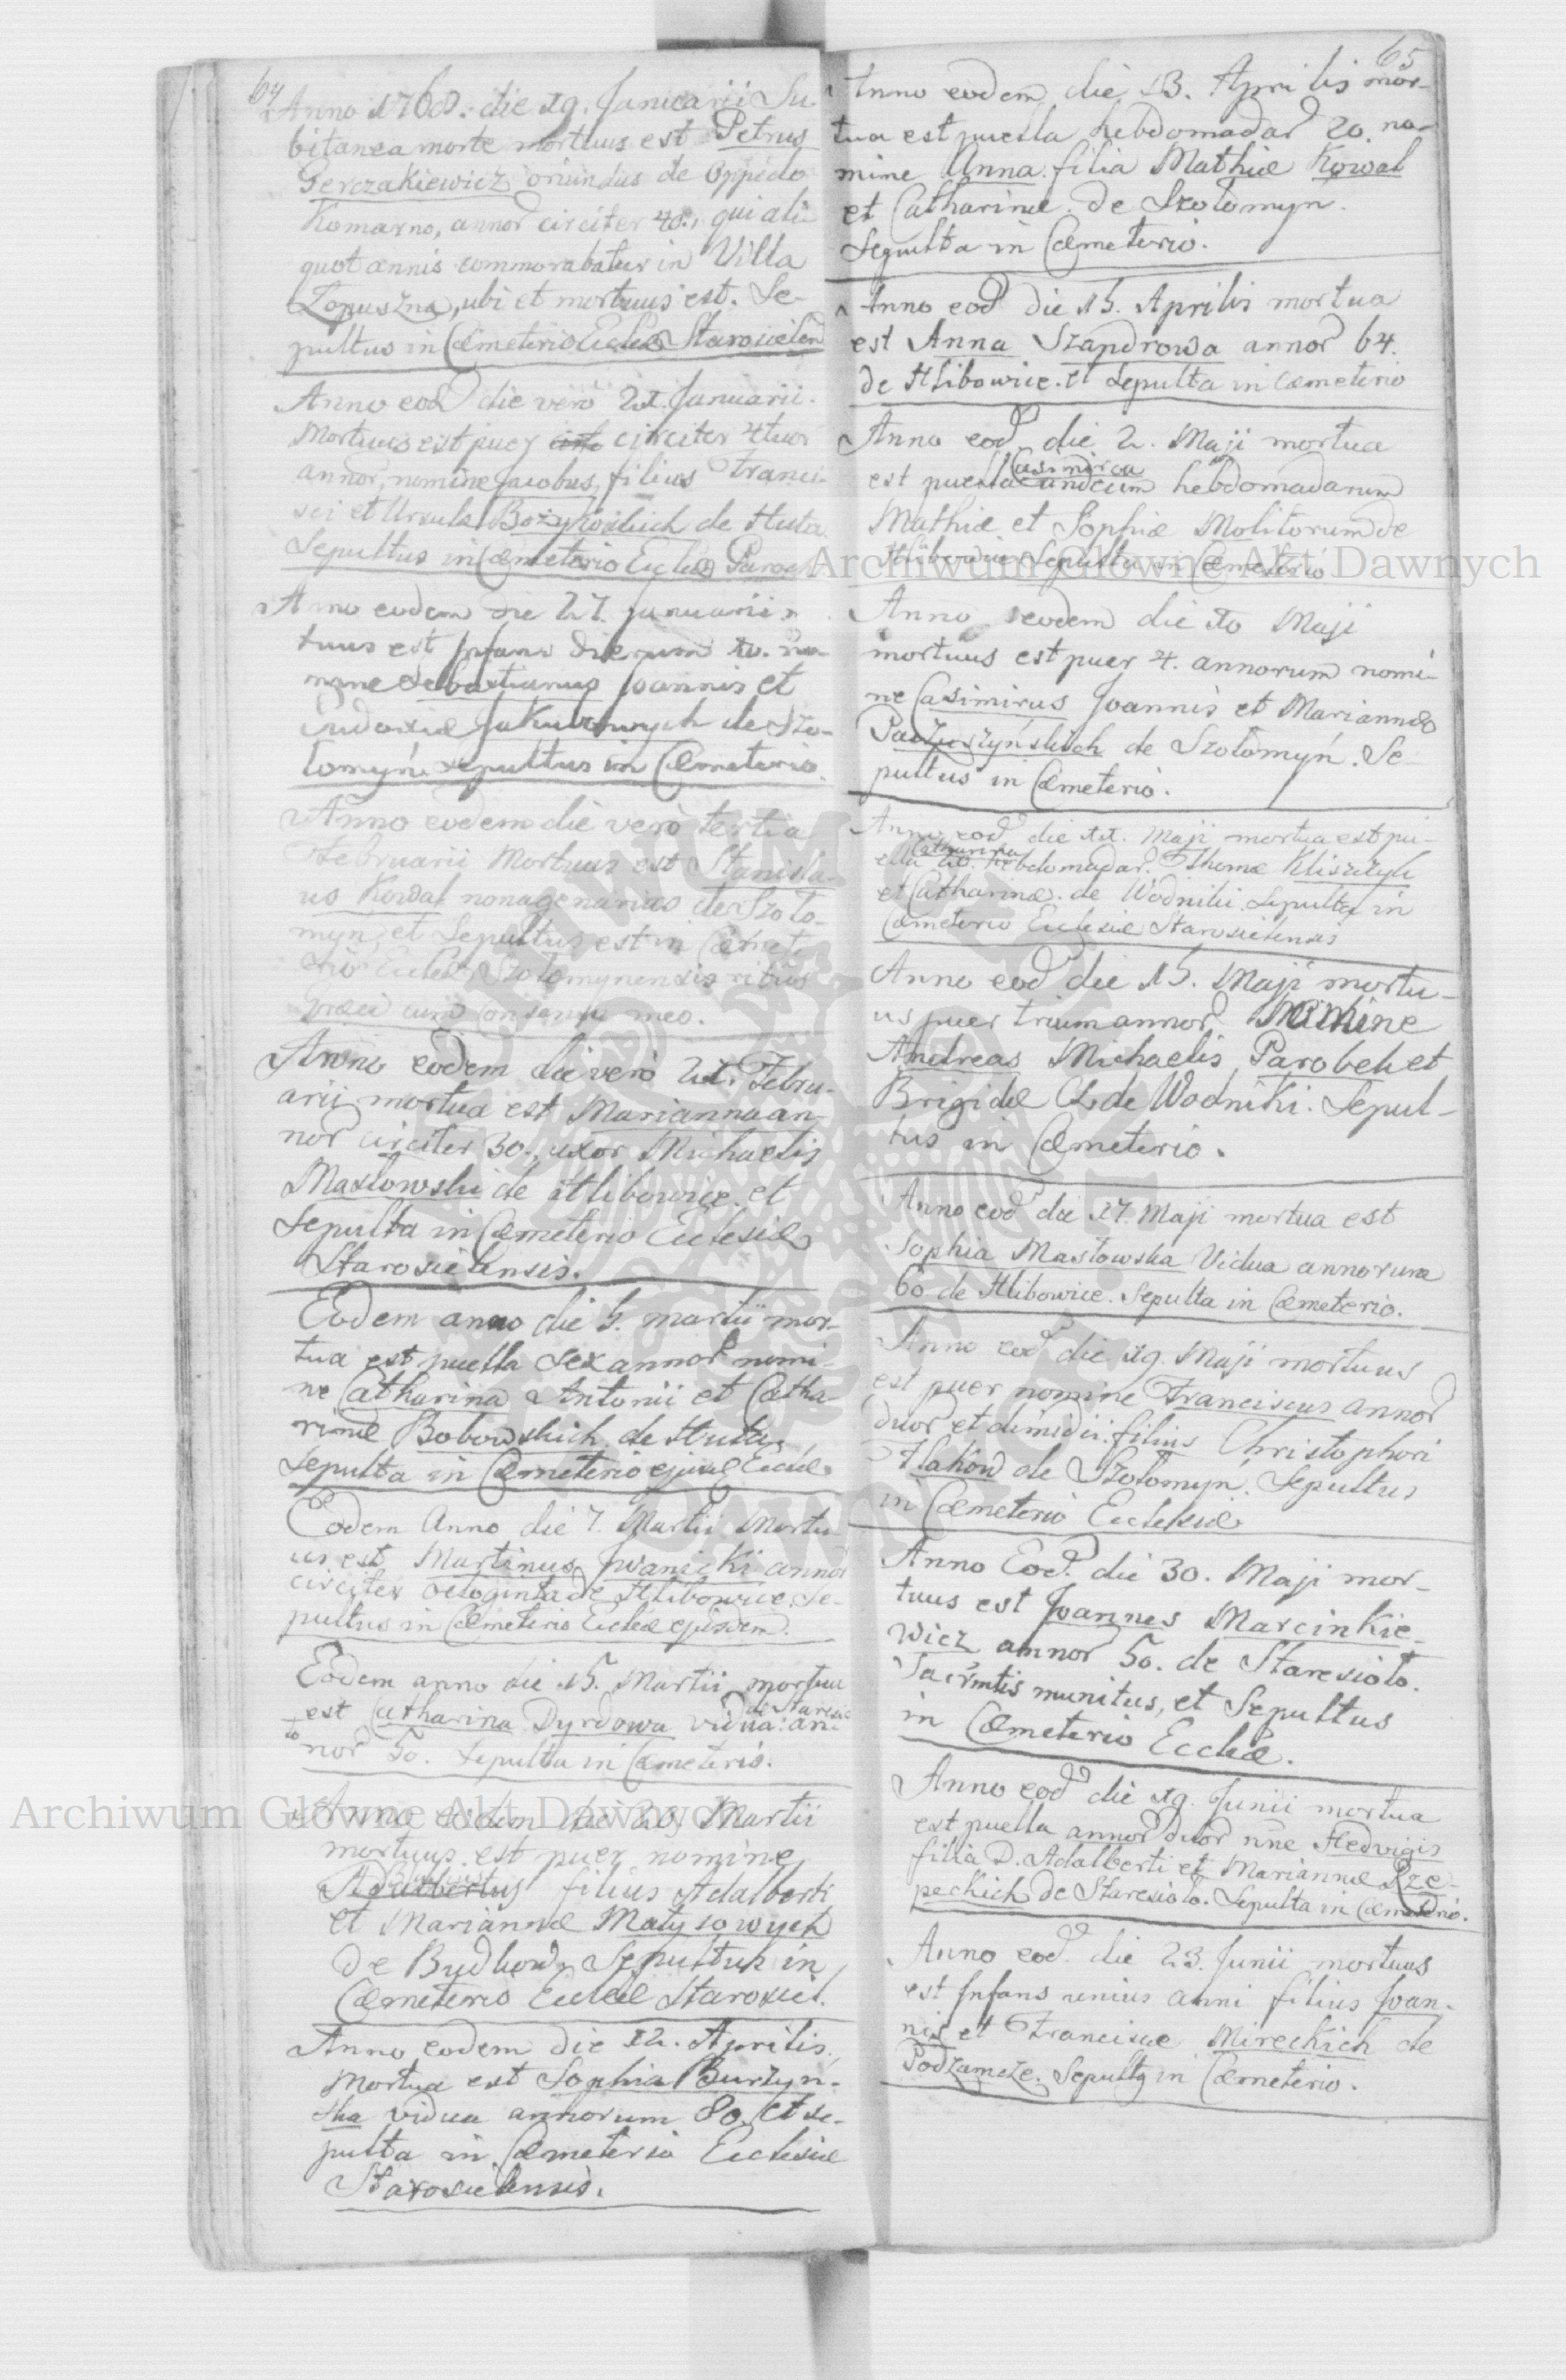 64
Anno 1768. die 19. Januarii Su-
bitanea morte mortuus est Petrus
Gerczakiewicz oriundus de Oppido
Komarno, annor circiter 40., qui ali-
quot annis commorabatur in Villa
Łopuszna, ubi et mortuus est. Se-
pultus in Cæmeterio Starosielen
Anno eod die vero 21. Januarii.
Mortuus est puer circiter 4tuor
annor, nomine Jacobus, filius Franci-
sci et Ursulæ de Huta
Sepultus in Cæmeterio Eccliæ
Anno eodem die 27. Januarii
tuus est Infans dierum 10. no-
mine Sebastianus Joannis et
Eudoxiæ Jakubowych de Szo-
lomyń, sepultus in Cæmeterio.
Anno eodem die vero tertia
Februarii Mortuus est Stanisla-
us Kowal nonagenarias de Szolo-
myn, et Sepultus est in Cæmet-
erio Szolomynensis ritus
Græci cum consensu meo.
Anno eodem die vero 21. Febru-
arii mortua est Marianna an-
nor circiter 30., uxor Michaelis
Masłowski de Hlibowice. et
Sepulta in Cæmeterio Eclesiæ
Starosielensis.
Eodem anno die 5. martii mor-
tua est puella sex annor nomi-
ne Catharina Antonii et Catha-
rinæ Bobowskich de Huta,
Sepulta in Cæmeterio ejusd Eccliæ.
Eodem Anno die 7. Martii Mortu-
us est Martinus Jwanicki annor
circiter octoginta de Hlibowice, Se-
pultus in Cæmeterio Ecliæ ejusdem.
Eodem anno die 15. Martii mortua
de Staresio
est Catharina Dyrdowa vidua: an-
lo
nor 50. Sepulta in Cæmeterio.
Anno eodem die 20 Martii
mortuus est puer nomine
Adalbertus filius Adalberti
et Mariannæ Matysowych
de Sepultus in
Cæmeterio Ecliæ Starosiel.
Anno eodem die 12. Aprilis.
Mortua est Sophia Burzyń-
ska vidua annorum 80. et se-
pulta in Cæmeterio Eclesiæ
Starosielensis.
65
Anno eodem die 13. Aprilis mor-
tua est puella hebdomadar 20. no-
mine Anna filia Mathiæ Kowal
et Catharinæ de Szolomyn.
Sepulta in Cæmeterio.
Anno eod die 15. Aprilis mortua
est Anna Szandrowa annor 64.
de Hlibowice. et Sepulta in Cæmeterio
Anno eod die 2. Maji mortua
Casimira
est puella undecim hebdomadarum
Mathiæ et Sophiæ Molitorum de
Hlibowice Sepulta in Cæmeterio
Anno eodem die 10 Maji
mortuus est puer 4. annorum nomi-
ne Casimirus Joannis et Mariannæ
de Szolomyń. Se-
pultus in Cæmeterio.
Anno eod die 11. Maji mortua est pu-
Catharina
ella 20. hebdomadar. Thomæ Kliszczyk
et Catharinæ. de Wodniki. Sepulta in
Cæmeterio Eclesiæ Starosielensis
Anno eod die 15. Maji mortu-
us puer trium annor Nomine
Andreas Michaelis Parobek et
Brigidæ de Wodniki. Sepul-
tus in Cæmeterio.
Anno eod die 17. Maji mortua est
Sophia Masłowska Vidua annorum
60 de Hlibowice. Sepulta in Cæmeterio.
Anno eod die 19. Maji mortuus
est puer nomine Franciscus annor
duor et dimidii. filius Christophori
Hlakow de Szolomyn. Sepultus
in Cæmeterio Ecclesiæ
Anno Eod. die 30. Maji mor-
tuus est Joannes Marcinkie-
wicz annor 50. de Staresioło.
Sacrmtis munitus, et Sepultus
in Cæmeterio Eccliæ.
Anno eod die 19. Junii mortua
est puella annor duor nne Hedvigis
filia D. Adalberti et Mariannæ Rze-
peckich de Staresioło. Sepulta in Cæmeterio.
Anno eod. die 23. Junii mortuus
est Infans unius anni filius Joan-
nis et Franciscæ Mireckich de
Podzamcze. Sepultg in Cæmeterio.
Archiwum Główne Akt Dawnych
Archiwum Główne Akt Dawnych